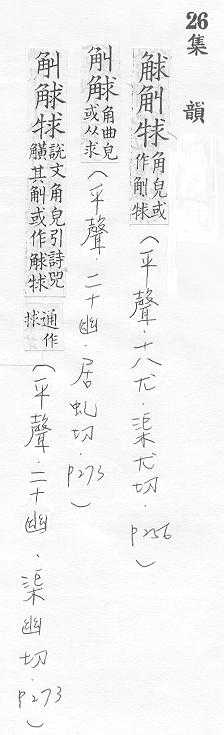 26 集韻
觩觓 角皃或作觓（平聲．十八尤．渠尤切．P256）
觓觩 角曲皃或从求（平聲．二十幽．居虬切．P273）
觓觩 說文角皃引詩兕觵其觓或作觩 通作捄（平聲．二十幽．渠幽切．P273）